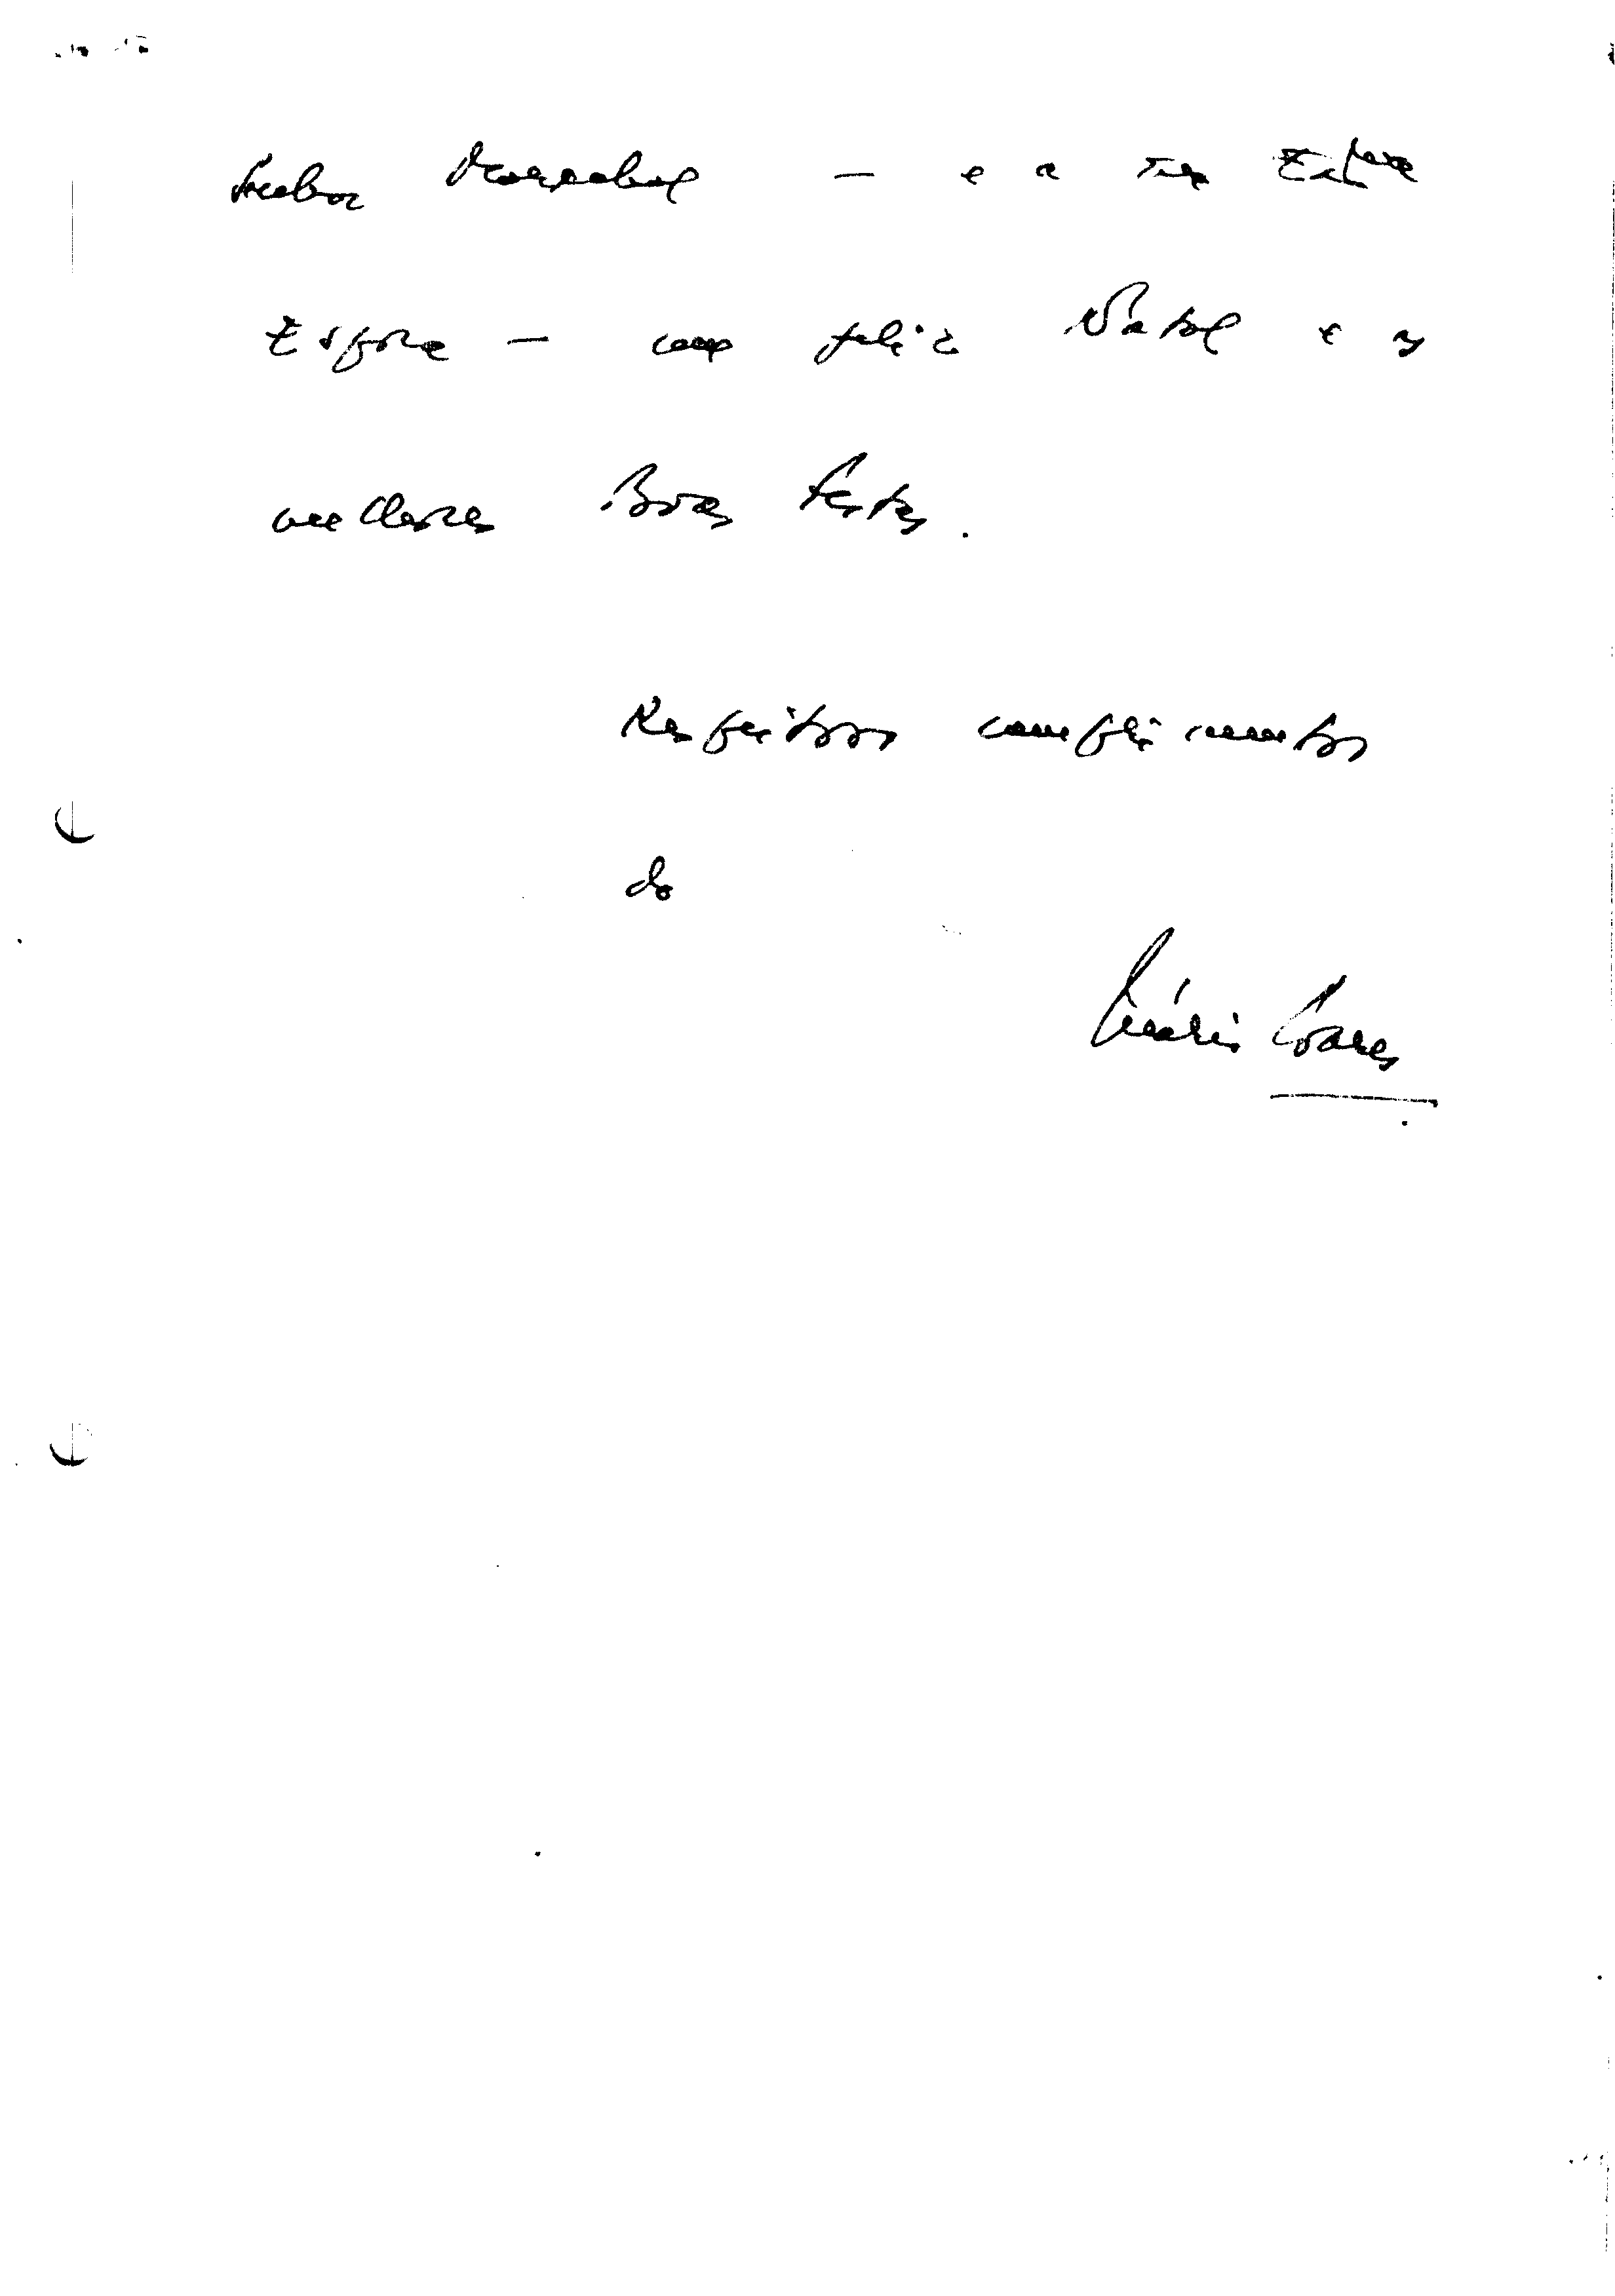 Senhor Marechal — e a sua Exma
Esposa — um feliz Natal e as
melhores Boas Festas.
Respeitosos cumprimentos
do
Mário Soares